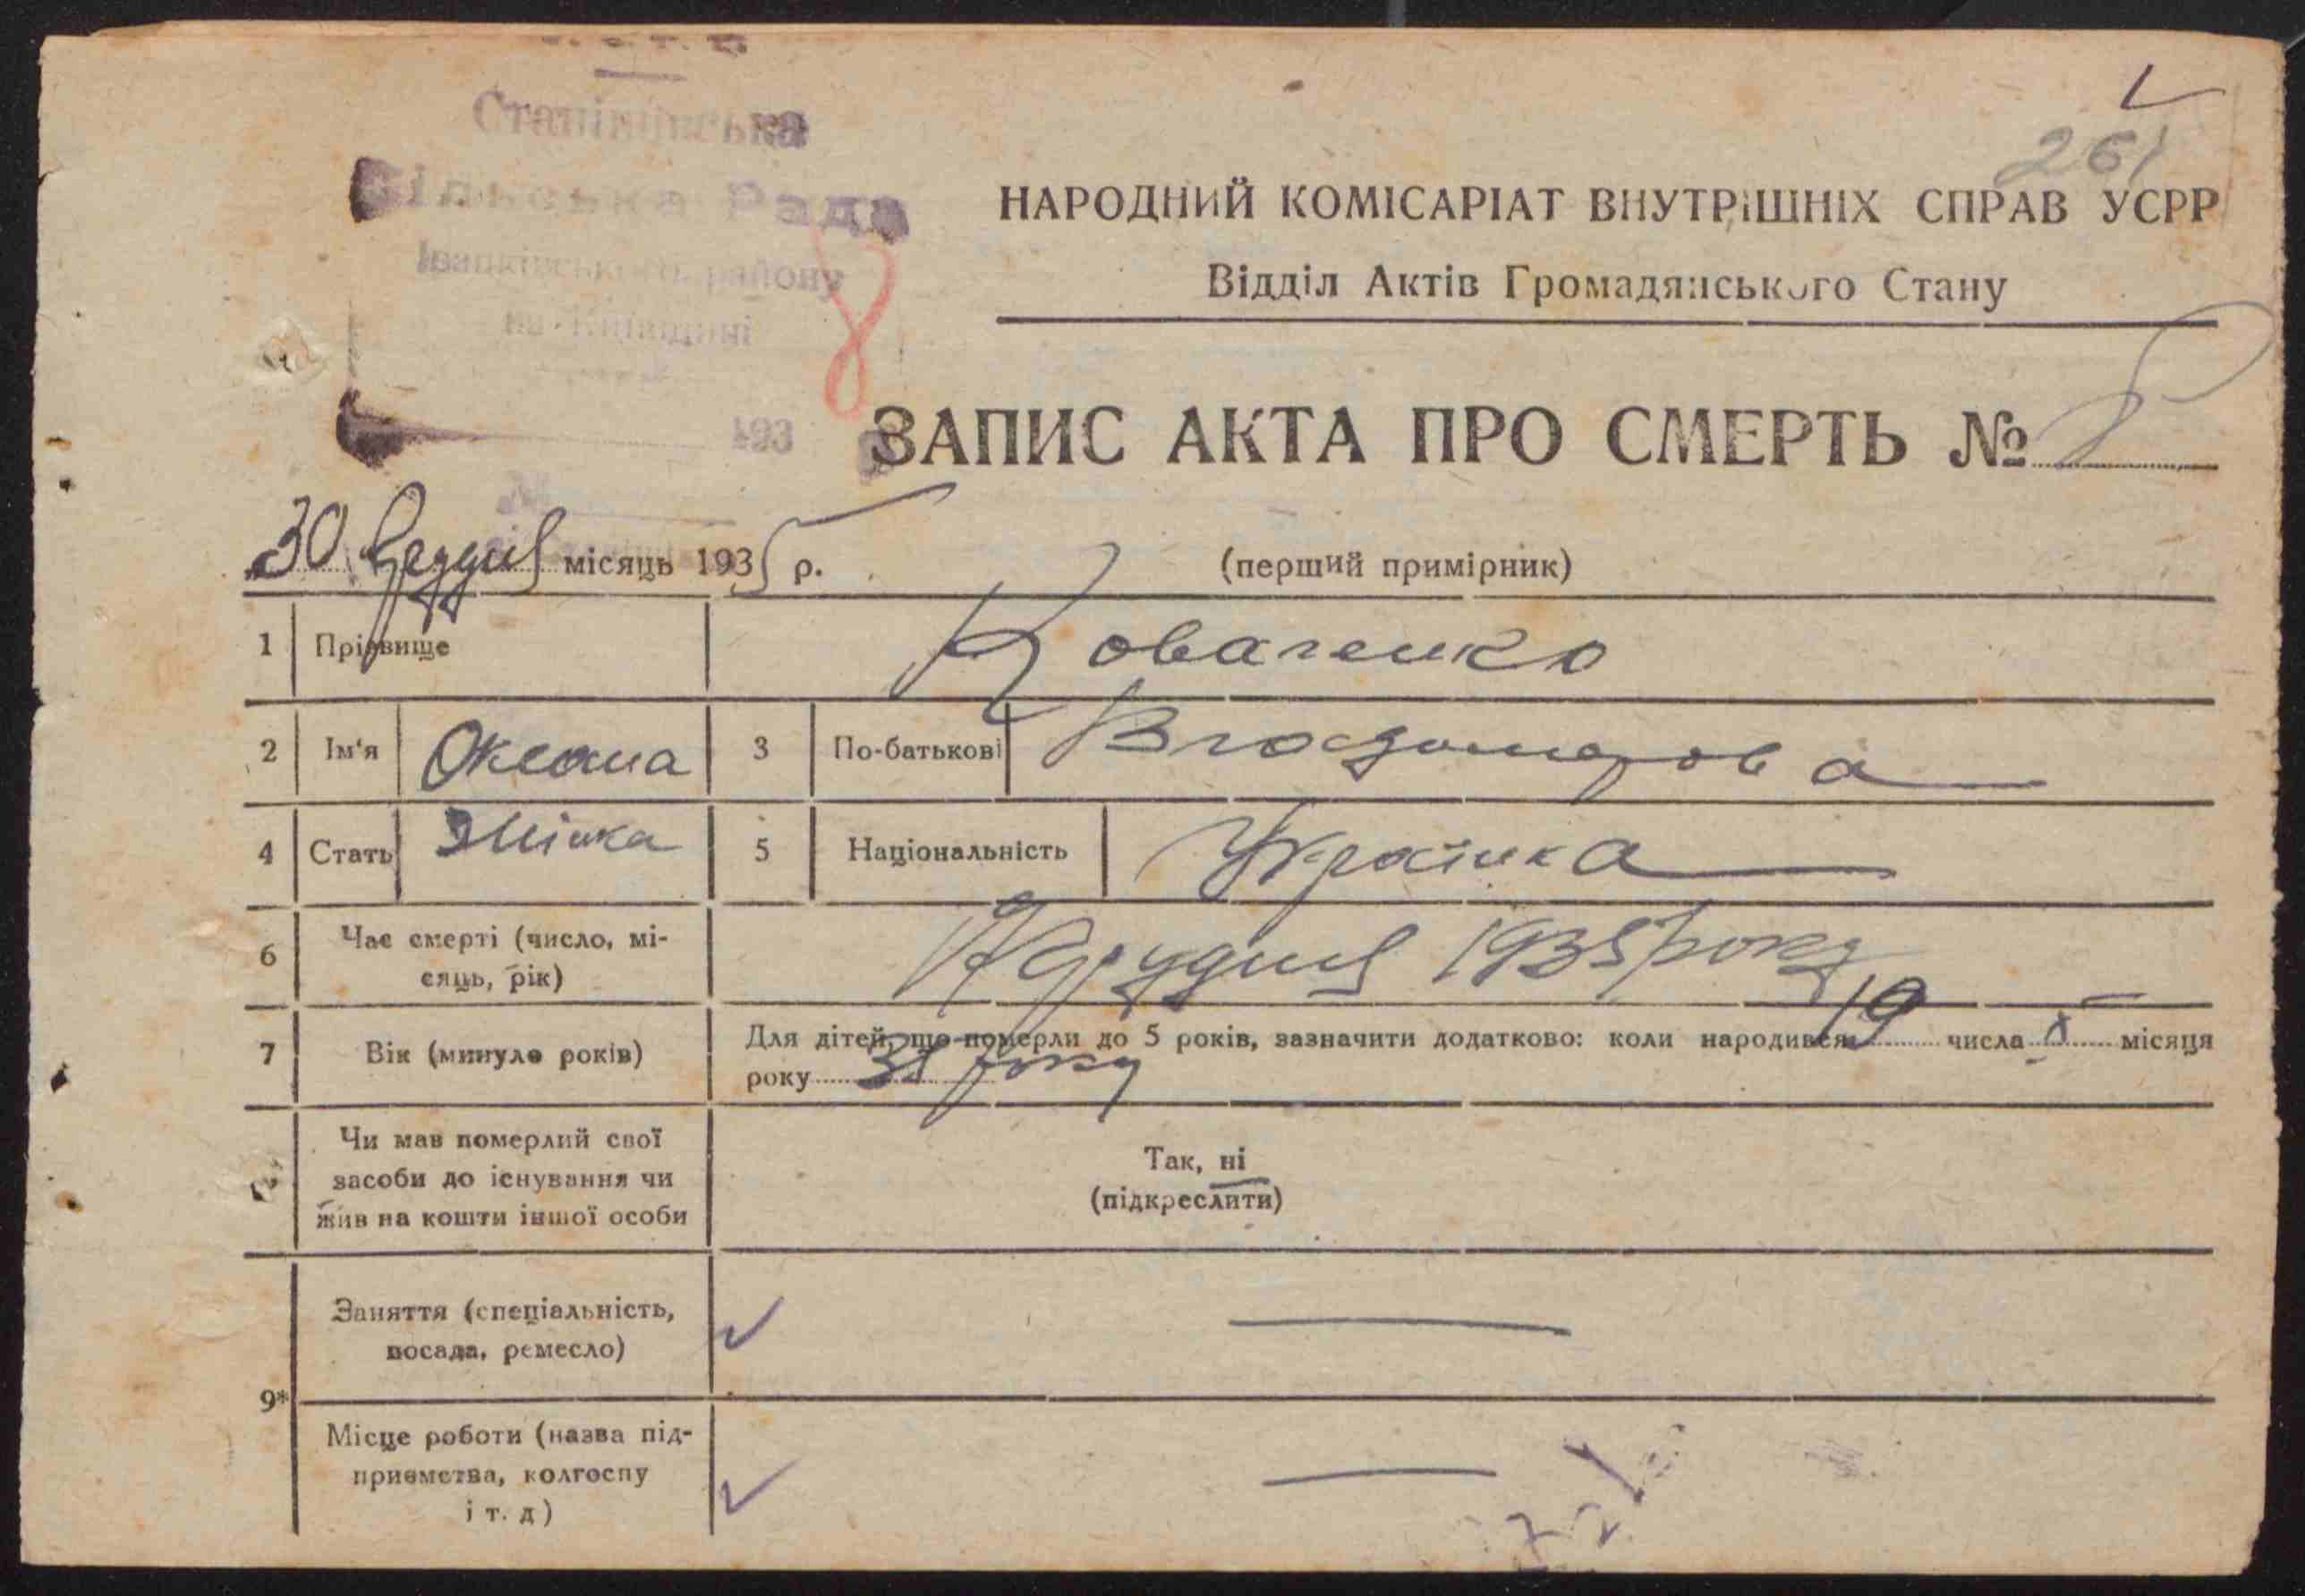 Сільська Рада
Іванківського району
на Київщині
193
261
НАРОДНИЙ КОМІСАРІАТ ВНУТРІШНІХ СПРАВ УСРР
Відділ Актів Громадянського Стану
8
ЗАПИС АКТА ПРО СМЕРТЬ № 8
30 Грудня місяць 1935 р. (перший примірник)
1 Прізвище Коваченко
2 Ім'я Оксана 3 По-батькові Володимирова
4 Стать Жінка 5 Національність Українка
6 Час смерті (число, мі-
сяць, рік)
Грудня 1935 року
7 Вік (минуло років) Для дітей, що померли до 5 років, зазначити додатково: коли народився 19 числа X місяця
року 35 року
Чи мав померлий свої
засоби до існування чи
жив на кошти іншої особи
Так, ні
(підкреслити)
9*
Заняття (спеціальність,
посада, ремесло)
Місце роботи (назва під-
приємства, колгоспу
і т. д)